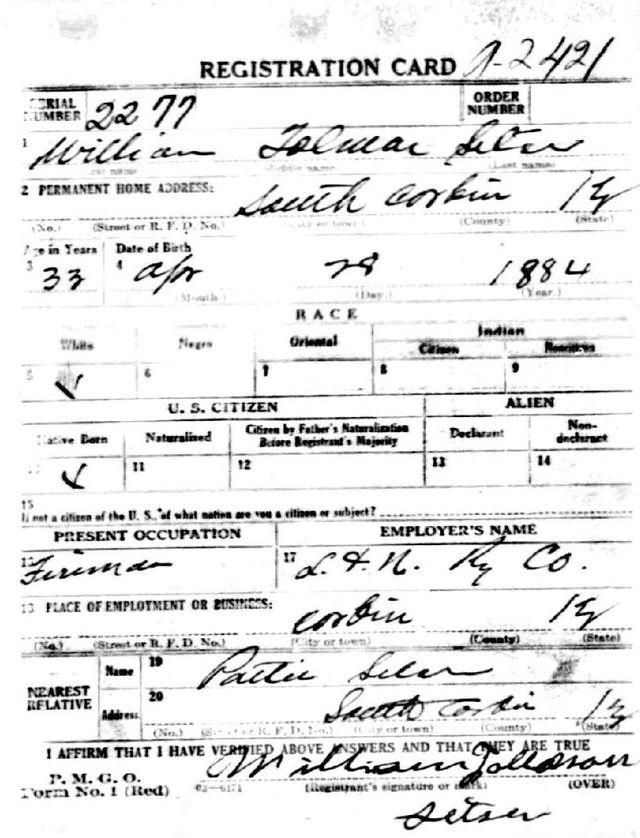 REGISTRATION CARD A-2421
SERIAL NUMBER 2277 ORDER NUMBER
1 William Tolmar Setser
(First name) (Middle name) (Last name)
2 PERMANENT HOME ADDRESS: South Corbin Ky
(No.) (Street or R. F. D. No.) (City or town) (County) (State)
Age in Years Date of Birth
3 33 4 Apr 28 1884
(Month.) (Day.) (Year.)
RACE
White Negro Oriental Indian
Citizen Noncitizen
5 ✓ 6 7 8 9
U. S. CITIZEN ALIEN
Native Born Naturalized Citizen by Father's Naturalization Before Registrant's Majority Declarant Non-declarant
10 ✓ 11 12 13 14
15
If not a citizen of the U. S., of what nation are you a citizen or subject?
PRESENT OCCUPATION EMPLOYER'S NAME
16 Fireman 17 L. & N. Ry Co.
18 PLACE OF EMPLOYMENT OR BUSINESS: Corbin Ky
(No.) (Street or R. F. D. No.) (City or town) (County) (State)
NEAREST RELATIVE Name 19 Setser
Address 20 South Corbin Ky
(No.) (Street or R. F. D. No.) (City or town) (County) (State)
I AFFIRM THAT I HAVE VERIFIED ABOVE ANSWERS AND THAT THEY ARE TRUE
P. M. G. O.
Form No. 1 (Red) 03-6171 (Registrant's signature or mark) (OVER)
William
Setser